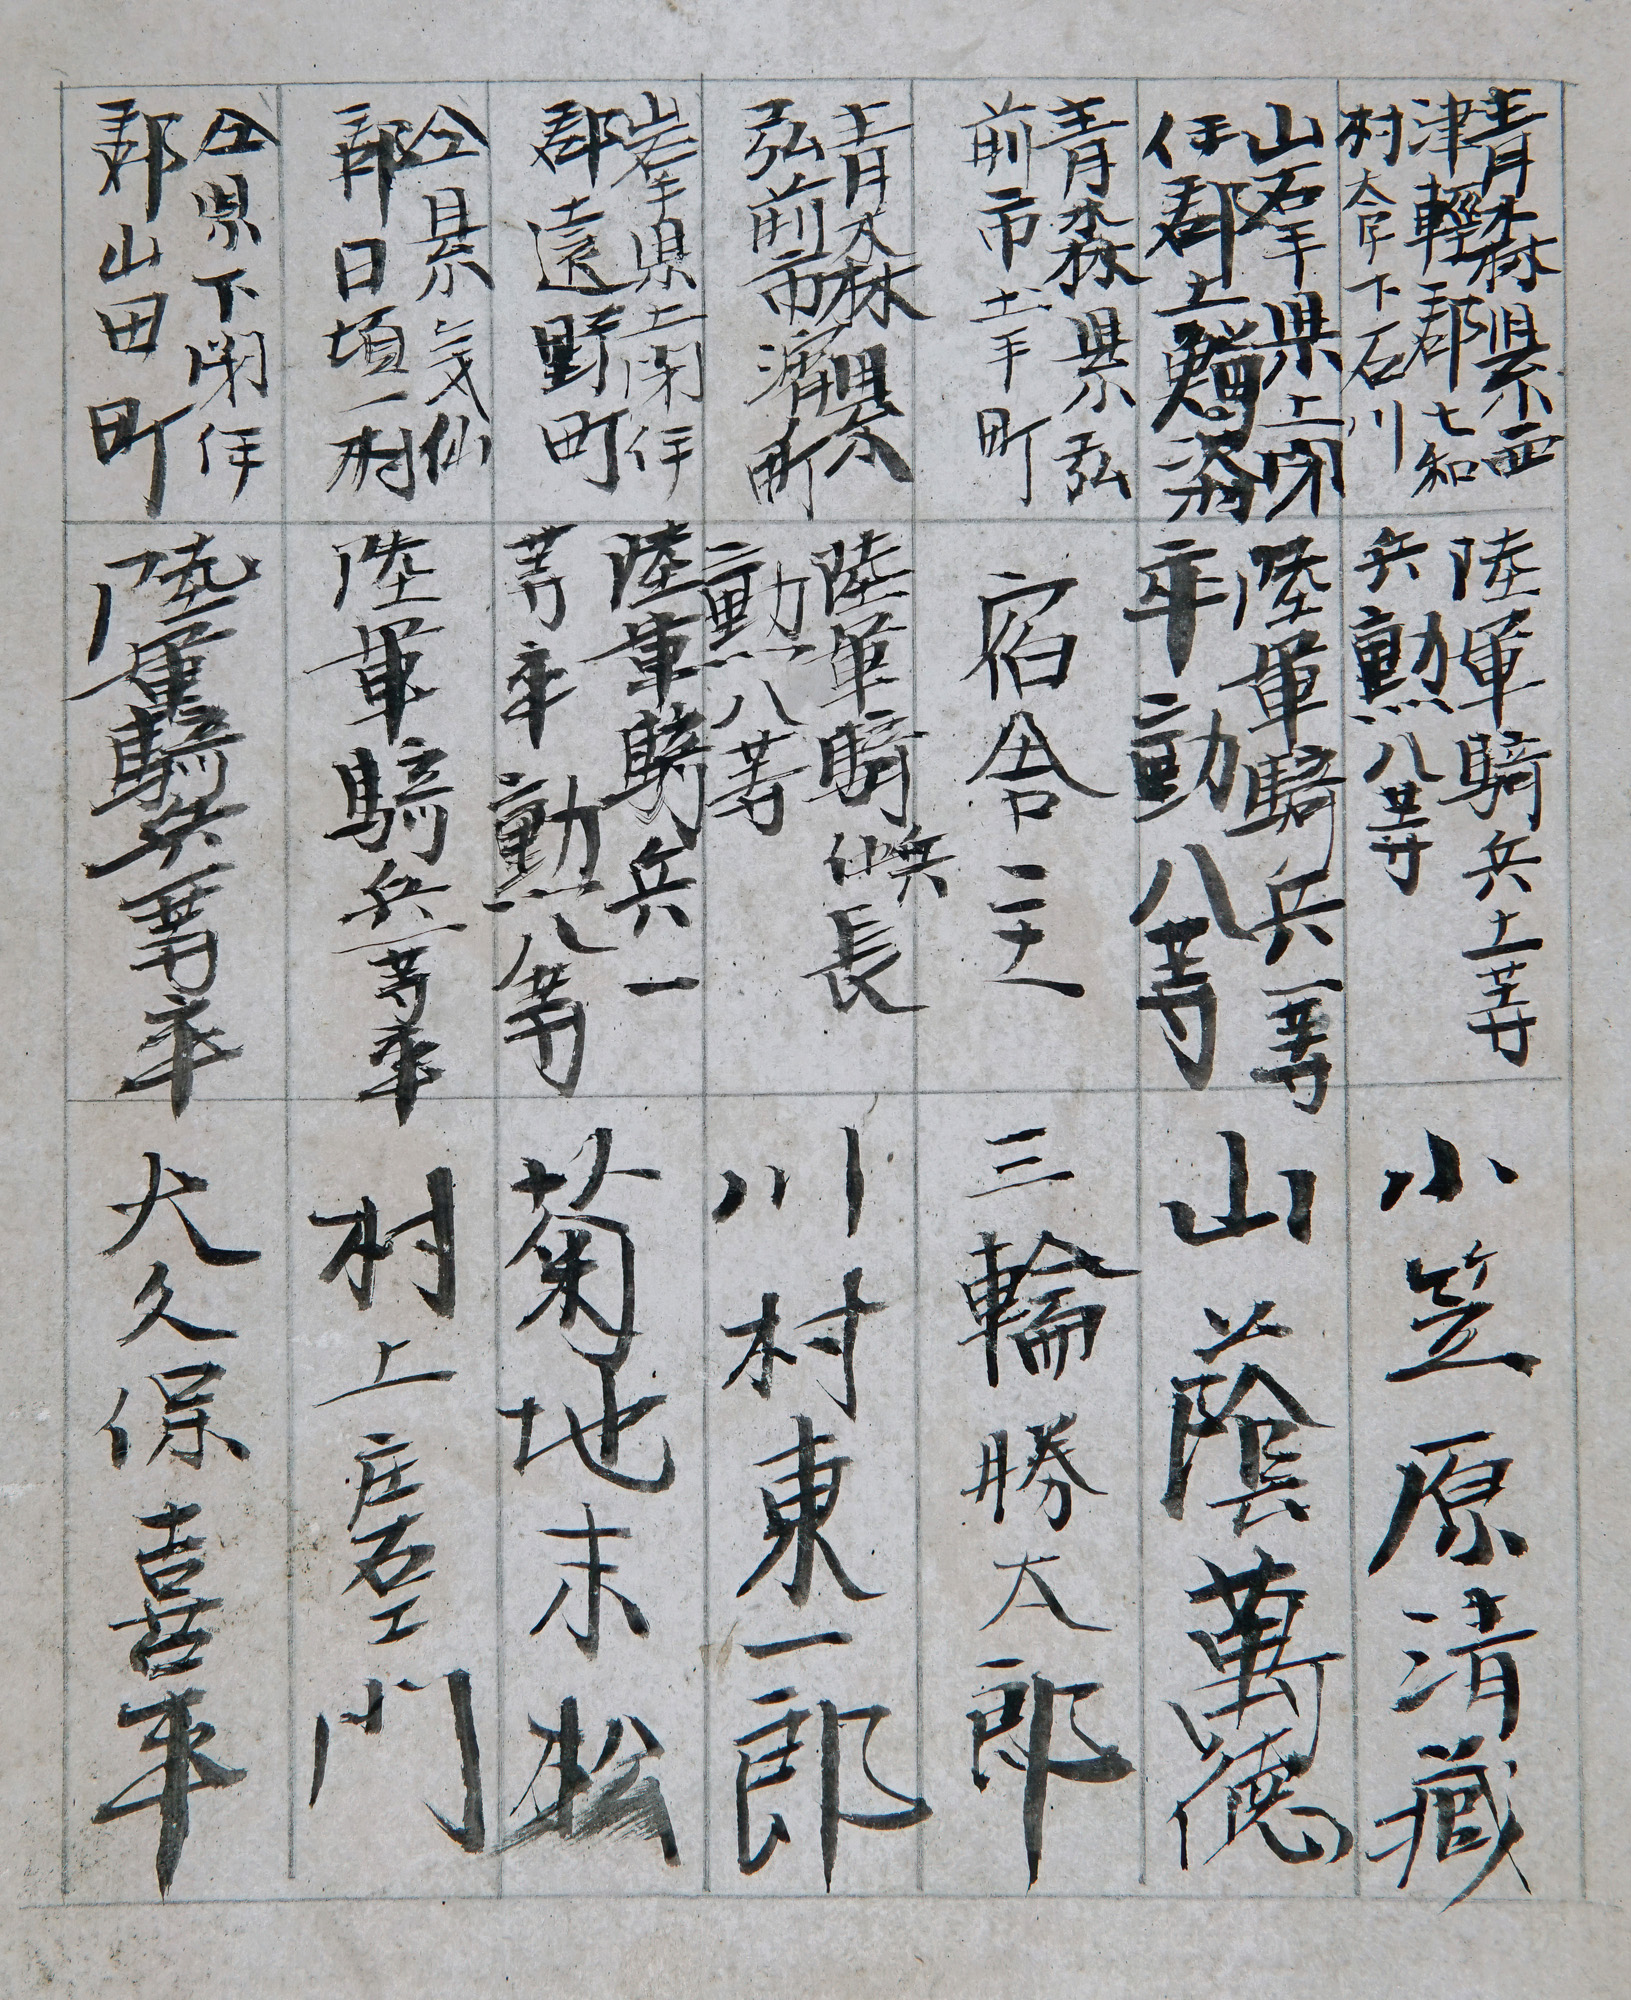 青森県西
津輕郡七和
村大字下石川
陸軍騎兵上等
兵勲八等
小笠原清藏
岩手県上閉
伊郡上鱒沢
陸軍騎兵一等
卒勲八等
山蔭萬徳
青森県弘
前市土手町
宿舎主
三輪勝太郎
青森県
弘前市濱町
陸軍騎兵伍長
勲八等
川村東一郎
岩手県上閉伊
郡遠野町
陸軍騎兵一
等卒勲八等
菊地末松
仝県気仙
郡日頃村
陸軍騎兵一等卒
村上庄右エ門
仝県下閉伊
郡山田町
陸軍騎兵一等卒
大久保喜平